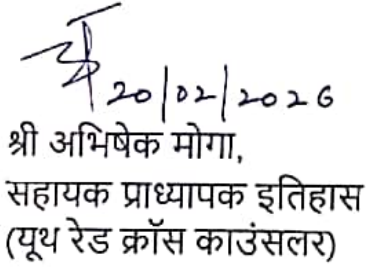 20/02/2026
श्री अभिषेक मोगा,
सहायक प्राध्यापक इतिहास
(यूथ रेड क्रॉस काउंसलर)